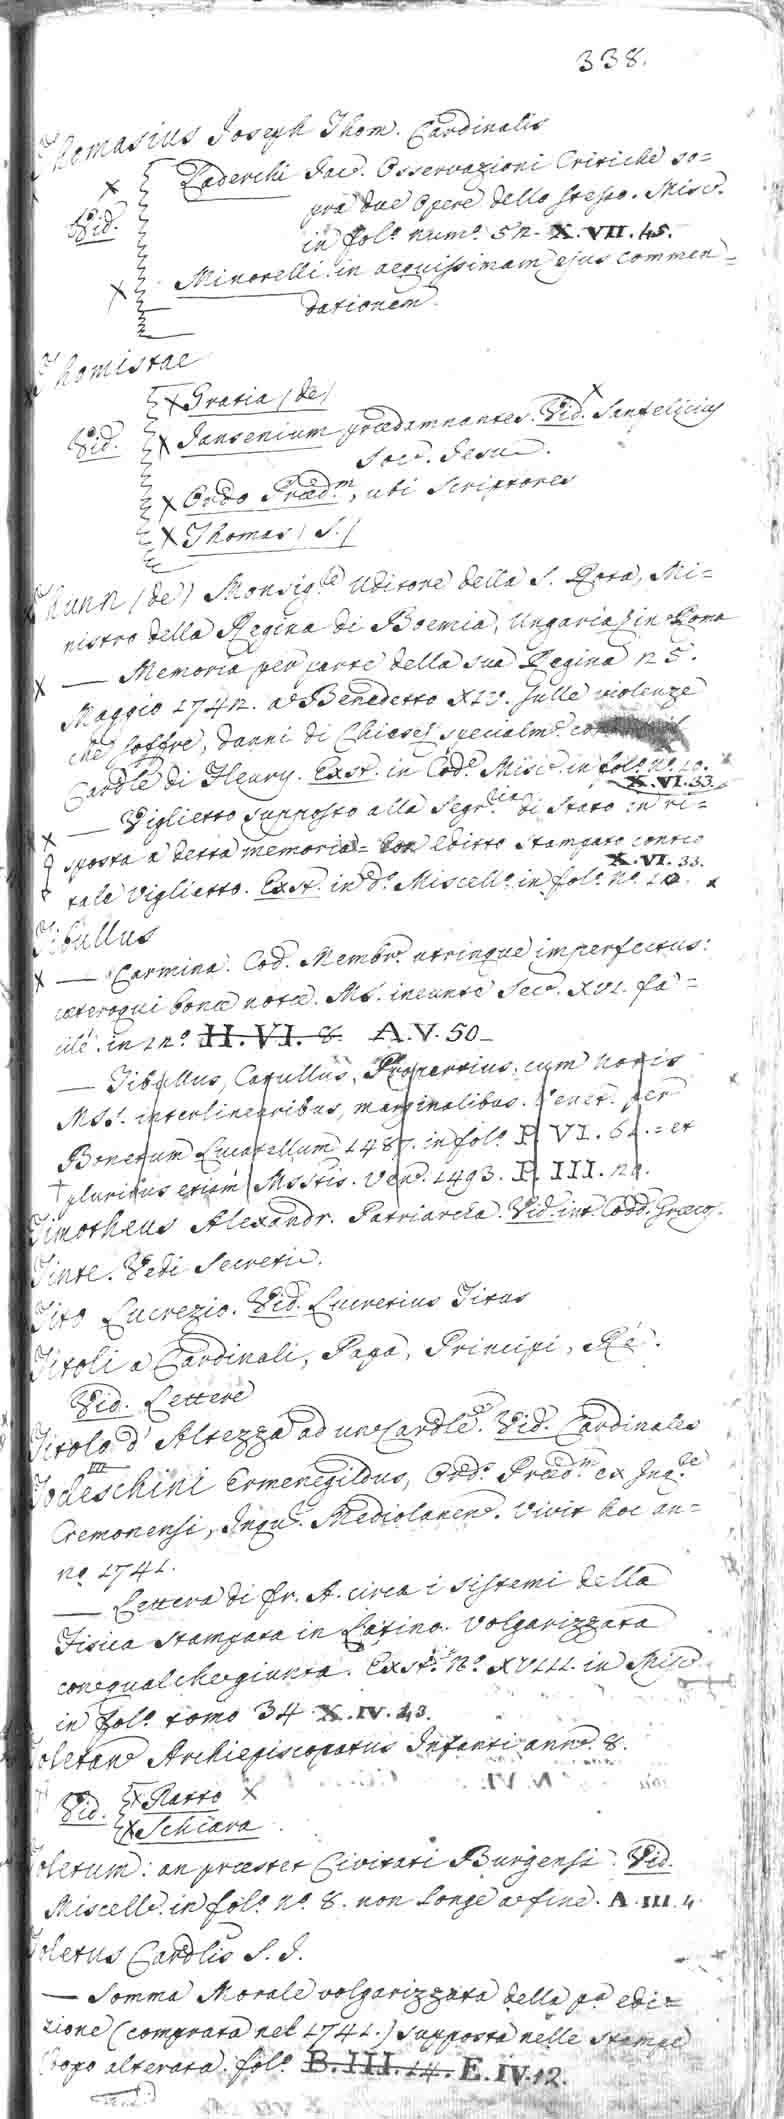 338.
Thomasius Joseph Thom. Cardinalis
Laderchi Jac. Osservazioni Critiche so=
Vid. pra due Opere dello stesso. Misc.
in fol. num. 52. X. VII. 45.
Minorelli in aequissimam ejus commen=
dationem.
Thomistae
Gratia (de)
Vid. Jansenium praedamnantes. Vid. Sanfelicius
Soc. Jesu.
Ordo Praed.m, ubi Scriptores
Thomas (S.)
Thunn (de) Monsig.re Uditore della S. Rota, Mi=
nistro della Regina di Boemia, Ungaria in Roma
— Memoria per parte della sua Regina 25.
Maggio 1742. a Benedetto XIV. sulle violenze
che soffre, danni di Chiese specialm.
Card.le di Fleury. Exst. in Cod. Misc. in fol. n. 10.
X. VI. 33.
— Viglietto supposto alla Segr.ria di Stato in ri=
sposta a detta memoria = Editto stampato contro
X. VI. 33.
tale Viglietto. Exst. in d.o Miscell. in fol. n. 10.
Tibullus
— Carmina. Cod. Membr. utrinque imperfectus:
caeteroqui bonae notae. MS. ineunte Sec. XVI. fa=
cile. in 12.o H. VI. 8. A. V. 50
— Tibullus, Catullus, Propertius. cum notis
MSS. interlinearibus, marginalibus. Venet. per
Bonetum Locatellum 1487. in fol. P. VI. 61. = et
pluribus etiam Msstis. Ven. 1493. P. III. 21.
Timotheus Alexandr. Patriarcha. Vid. int. Codd. Graecos.
Tinte. Vedi Secreti.
Tito Lucrezio. Vid. Lucretius Titus
Titoli a Cardinali, Papa, Principi, Rè.
Vid. Lettere
Titolo d'Altezza ad un Cardle. Vid. Cardinales
Todeschini Ermenegildus, Ord. Praed.m ex Inq.re
Cremonensi, Inqu. Mediolanen. vivit hoc an=
no 1741.
— Lettera di fr. A. circa i sistemi della
Fisica stampata in Latino. Volgarizzata
con qualche giunta. Exst. N.o XVIII. in Misc.
in fol. tomo 34. X. IV. 43.
Toletan. Archiepiscopatus Infanti ann. 8.
Vid. Ratto
Schiara
Toletum: an praestet Civitati Burgensi. Vid.
Miscell. in fol. n. 8. non longe a fine. A. III. 4.
Toletus Cardlis S. J.
— Somma Morale volgarizzata della p.a edi=
zione (comprata nel 1741.) supposta nelle stampe
dopo alterata. fol. B. III. 14. E. IV. 12.